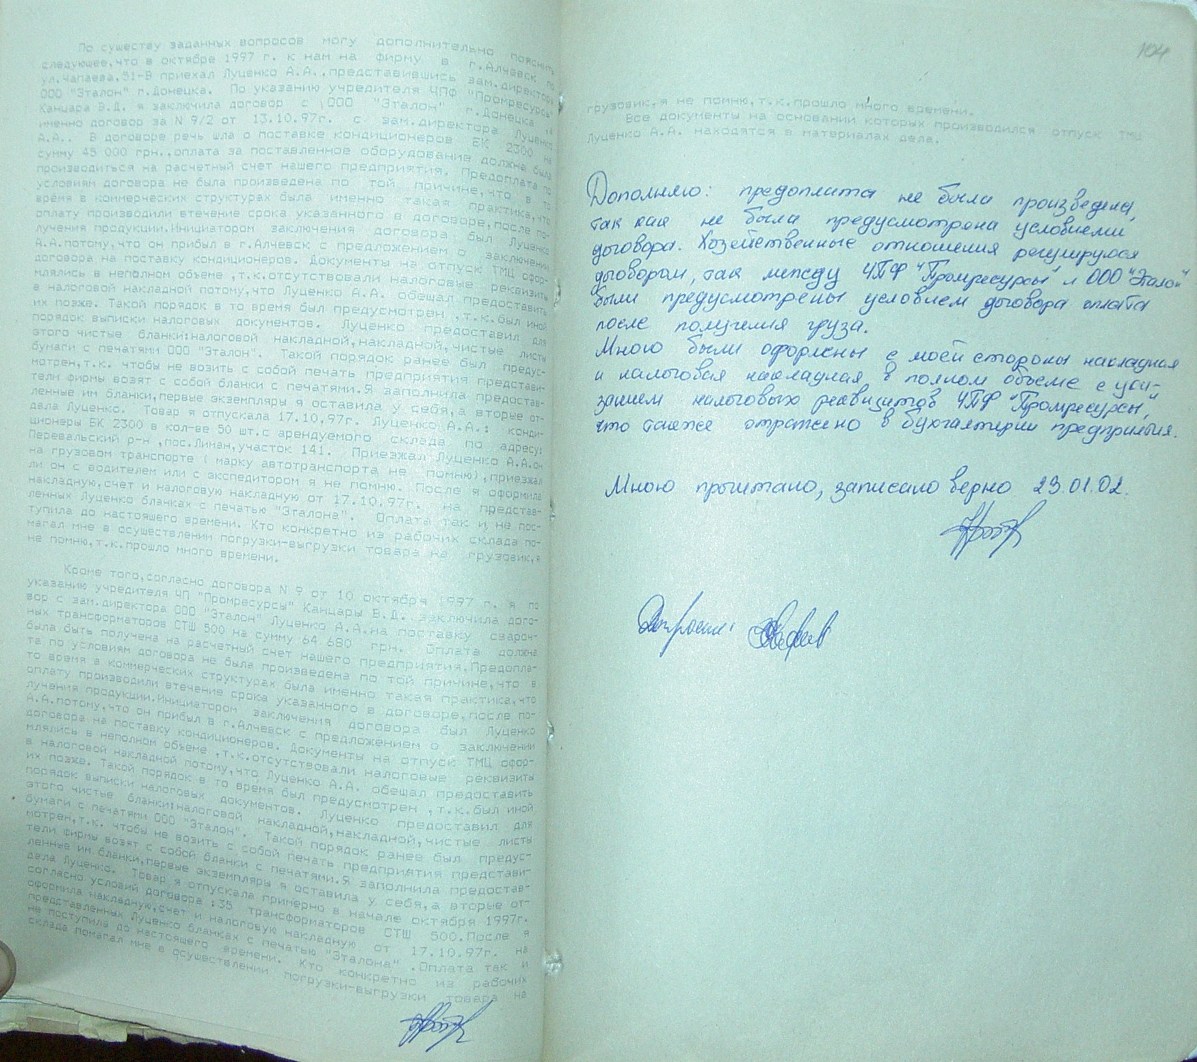 По существу заданных вопросов могу дополнительно пояснить
следующее,что в октябре 1997 г. к нам на фирму в г.Алчевск по
ул.Чапаева,51-В приехал Луценко А.А.,представившись зам.директора
ООО "Эталон" г.Донецка. По указанию учредителя ЧПФ "Промресурсы"
Канцара В.Д. я заключила договор с ООО "Эталон" г.Донецка ,а
именно договор за N 9/2 от 13.10.97г. с зам.директора Луценко
А.А.. В договоре речь шла о поставке кондиционеров БК 2300 на
сумму 45 000 грн.,оплата за поставленное оборудование должна была
производиться на расчетный счет нашего предприятия. Предоплата по
условиям договора не была произведена по той причине,что в то
время в коммерческих структурах была именно такая практика,что
оплату производили втечение срока указанного в договоре,после по-
лучения продукции.Инициатором заключения договора был Луценко
А.А.потому,что он прибыл в г.Алчевск с предложением о заключении
договора на поставку кондиционеров. Документы на отпуск ТМЦ офор-
млялись в неполном объеме ,т.к.отсутствовали налоговые реквизиты
в налоговой накладной потому,что Луценко А.А. обещал предоставить
их позже. Такой порядок в то время был предусмотрен ,т.к.был иной
порядок выписки налоговых документов. Луценко предоставил для
этого чистые бланки:налоговой накладной,накладной,чистые листы
бумаги с печатями ООО "Эталон". Такой порядок ранее был предус-
мотрен,т.к. чтобы не возить с собой печать предприятия представи-
тели фирмы возят с собой бланки с печатями.Я заполнила предостав-
ленные им бланки,первые экземпляры я оставила у себя,а вторые от-
дала Луценко. Товар я отпускала 17.10.97г. Луценко А.А.: конди-
ционеры БК 2300 в кол-ве 50 шт.с арендуемого склада по адресу:
Перевальский р-н ,пос.Ликан,участок 141. Приезжал Луценко А.А.он
на грузовом транспорте ( марку автотранспорта не помню),приезжал
ли он с водителем или с экспедитором я не помню. После я оформила
накладную,счет и налоговую накладную от 17.10.97г. на представ-
ленных Луценко бланках с печатью "Эталона". Оплата так и не пос-
тупила до настоящего времени. Кто конкретно из рабочих склада по-
магал мне в осуществлении погрузки-выгрузки товара на грузовик,я
не помню,т.к.прошло много времени.
Кроме того,согласно договора N 9 от 10 октября 1997 г. я по
указанию учредителя ЧП "Промресурсы" Канцары В.Д. заключила дого-
вор с зам.директора ООО "Эталон" Луценко А.А.на поставку свароч-
ных трансформаторов СТШ 500 на сумму 64 680 грн. Оплата должна
была быть получена на расчетный счет нашего предприятия.Предопла-
та по условиям договора не была произведена по той причине,что в
то время в коммерческих структурах была именно такая практика,что
оплату производили втечение срока указанного в договоре,после по-
лучения продукции.Инициатором заключения договора был Луценко
А.А.потому,что он прибыл в г.Алчевск с предложением о заключении
договора на поставку кондиционеров. Документы на отпуск ТМЦ офор-
млялись в неполном объеме ,т.к.отсутствовали налоговые реквизиты
в налоговой накладной потому,что Луценко А.А. обещал предоставить
их позже. Такой порядок в то время был предусмотрен ,т.к.был иной
порядок выписки налоговых документов. Луценко предоставил для
этого чистые бланки:налоговой накладной,накладной,чистые листы
бумаги с печатями ООО "Эталон". Такой порядок ранее был предус-
мотрен,т.к. чтобы не возить с собой печать предприятия представи-
тели фирмы возят с собой бланки с печатями.Я заполнила предостав-
ленные им бланки,первые экземпляры я оставила у себя,а вторые от-
дала Луценко. Товар я отпускала примерно в начале октября 1997г.
согласно условий договора :35 трансформаторов СТШ 500.После я
оформила накладную,счет и налоговую накладную от 17.10.97г. на
представленных Луценко бланках с печатью "Эталона" .Оплата так и
не поступила до настоящего времени. Кто конкретно из рабочих
склада помагал мне в осуществлении погрузки-выгрузки товара на
104
грузовик,я не помню,т.к.прошло много времени.
Все документы на основании которых производился отпуск ТМЦ
Луценко А.А. находятся в материалах дела.
Дополняю: предоплата не была произведена,
так как не была предусмотрена условиями
договора. Хозяйственные отношения регулируются
договором, так между ЧПФ "Промресурсы" и ООО "Эталон"
были предусмотрены условием договора оплата
после получения груза.
Мною были оформлены с моей стороны накладная
и налоговая накладная в полном объеме с ука-
занием налоговых реквизитов ЧПФ "Промресурсы",
что также отражено в бухгалтерии предприятия.
Мною прочитано, записано верно 23.01.02.
Допросил: